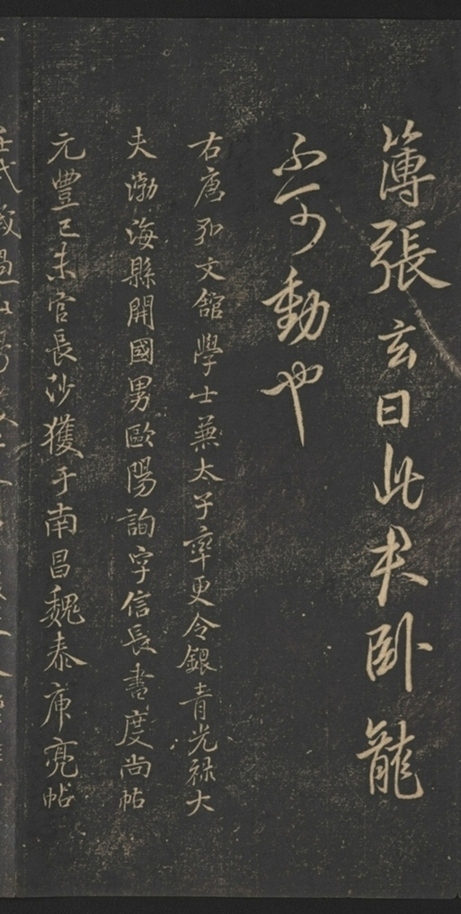 簿張玄曰此君卧龍
不可動也
右唐弘文館學士兼太子率更令銀青光祿大
夫渤海縣開國男歐陽詢字信長書度尚帖
元豐己未官長沙獲于南昌魏泰庾亮帖